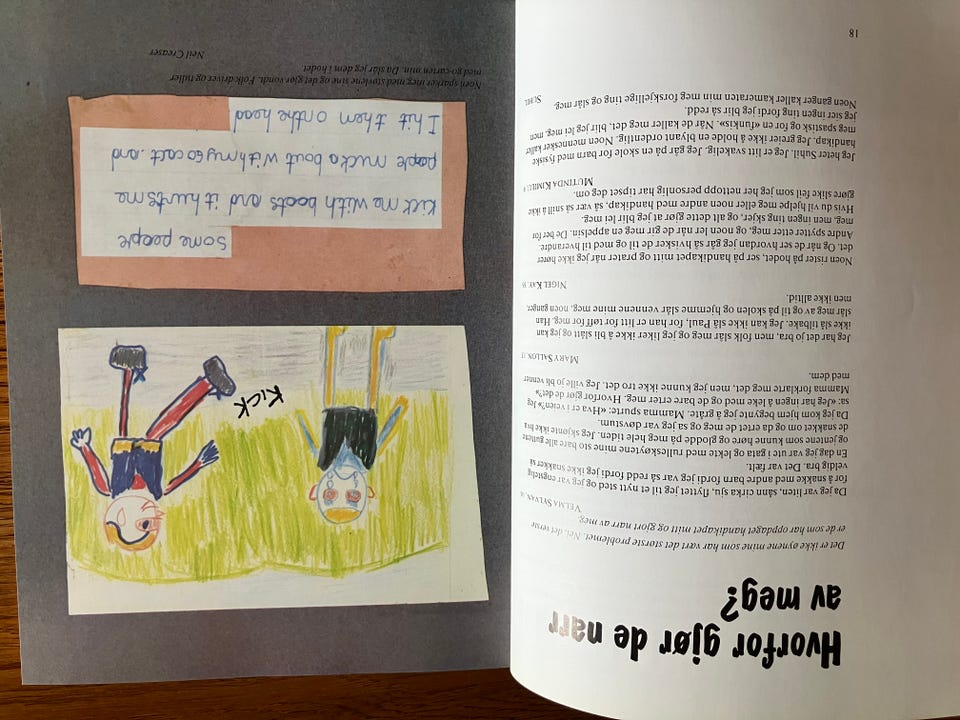 Hvorfor gjør de narr
av meg?
Det er ikke øynene mine som har vært det største problemet. Nei, det verste
er de som har oppdaget handikapet mitt og gjort narr av meg.
VELMA SYLVAN
Da jeg var liten, sånn cirka sju, flyttet jeg til et nytt sted og jeg var engstelig
for å snakke med andre barn fordi jeg var så redd fordi jeg ikke snakker så
veldig bra. Det var fælt.
En dag jeg var ute i gata og lekte med rulleskøytene mine sto bare alle guttene
og jentene som kunne høre og glodde på meg hele tiden. Jeg skjønte ikke hva
de snakket om og da ertet de meg og sa jeg var døvstum.
Da jeg kom hjem begynte jeg å gråte. Mamma spurte: «Hva er i veien?» Jeg
sa: «Jeg har ingen å leke med og de bare erter meg. Hvorfor gjør de det?»
Mamma forklarte meg det, men jeg kunne ikke tro det. Jeg ville jo bli venner
med dem.
MARY SALLON 11
Jeg har det jo bra, men folk slår meg og jeg liker ikke å bli slått og jeg kan
ikke slå tilbake. Jeg kan ikke slå Paul, for han er litt for tøff for meg. Han
slår meg av og til på skolen og hjemme slår vennene mine meg, noen ganger,
men ikke alltid.
NIGEL KAY,
Noen rister på hodet, ser på handikapet mitt og prater når jeg ikke hører
det. Og når de ser hvordan jeg går så hvisker de til og med til hverandre.
Andre spytter etter meg, og noen ler når de gir meg en appelsin. De ber for
meg, men ingen ting skjer, og alt dette gjør at jeg blir lei meg.
Hvis du vil hjelpe meg eller noen andre med handikap, så vær så snill å ikke
gjøre slike feil som jeg her nettopp personlig har tipset deg om.
MUTINDA
Jeg heter Suhil. Jeg er litt svakelig. Jeg går på en skole for barn med fysiske
handikap. Jeg greier ikke å holde en blyant ordentlig. Noen mennesker kaller
meg spastisk og for en «funkis». Når de kaller meg det, blir jeg lei meg, men
jeg sier ingen ting fordi jeg blir så redd.
Noen ganger kaller kameraten min meg forskjellige ting og slår meg.
18
KICK
Some people
Kick me with boots and it hurts me
people muck a bout with my go cart .and
I hit them on the head
Noen sparker meg med støvlene sine og det gjør vondt. Folk driver og tuller
med go-carten min. Da slår jeg dem i hodet
Neil Creaser